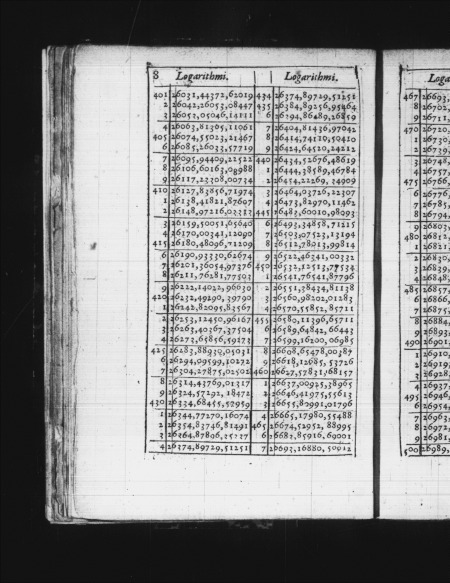 8 Logarithmi. Logarithmi.
401 26031,44372,62019 434 26374,89729,51251
2 26042,26053,08447 435 26384,89256,95464
3 26053,05046,14111 6 26394,86489,26859
4 26063,81365,11061 7 26404,81436,97042
405 26074,55023,21467 8 26414,74110,50410
6 26085,26033,57719 9 26424,64520,24212
7 26095,94409,22522 440 26434,52676,48619
8 26106,60163,08988 1 26444,38589,46784
9 26117,23308,00734 2 26454,22269,34909
410 26127,83856,71974 3 26464,03726,22307
1 26138,41821,87607 4 26473,82970,11462
2 26148,97216,03313 445 26483,60010,98093
3 26159,50051,65640 6 26493,34858,71215
4 26170,00341,12090 7 26503,07523,13194
415 26180,48096,71209 8 26512,78013,99814
6 26190,93330,62674 9 26522,46341,00332
7 26201,36054,97376 450 26532,12513,77534
8 26211,76281,77503 1 26541,76541,87796
9 26222,14022,96630 2 26551,38434,81138
420 26232,49290,39790 3 26560,98202,01283
1 26242,82095,83567 4 26570,55852,85711
2 26253,12450,96167 455 26580,11396,65711
3 26263,40367,37504 6 26589,64842,66443
4 26273,65856,59273 7 26599,16200,06985
425 26283,88930,05031 8 26608,65478,00387
6 26294,09599,10272 9 26618,12685,53726
7 26304,27875,02502 460 26627,57831,68157
8 26314,43769,01317 1 26637,00925,38965
9 26324,57292,18472 2 26646,41975,55613
430 26334,68455,57959 3 26655,80991,01796
1 26344,77270,16074 4 26665,17980,55488
2 26354,83746,81491 465 26674,52952,88995
3 26364,87896,35337 6 26683,85916,69001
4 26374,89729,51251 7 26693,16880,50012
Loga
467 26693,
8 26702,
9 26711,
470 26720,
1 26730,
2 26739,
3 26748,
4 26757,
475 26766,
6 26776,
7 26785,
8 26794,
9 26803,
480 26812,
1 26821,
2 26830,
3 26839,
4 26848,
485 26857,
6 26866,
7 26875,
8 26884,
9 26893,
490 26901,
1 26910,
2 26919,
3 26928,
4 26937,
495 26946,
6 26954,
7 26963,
8 26972,
9 26981,
500 26989,